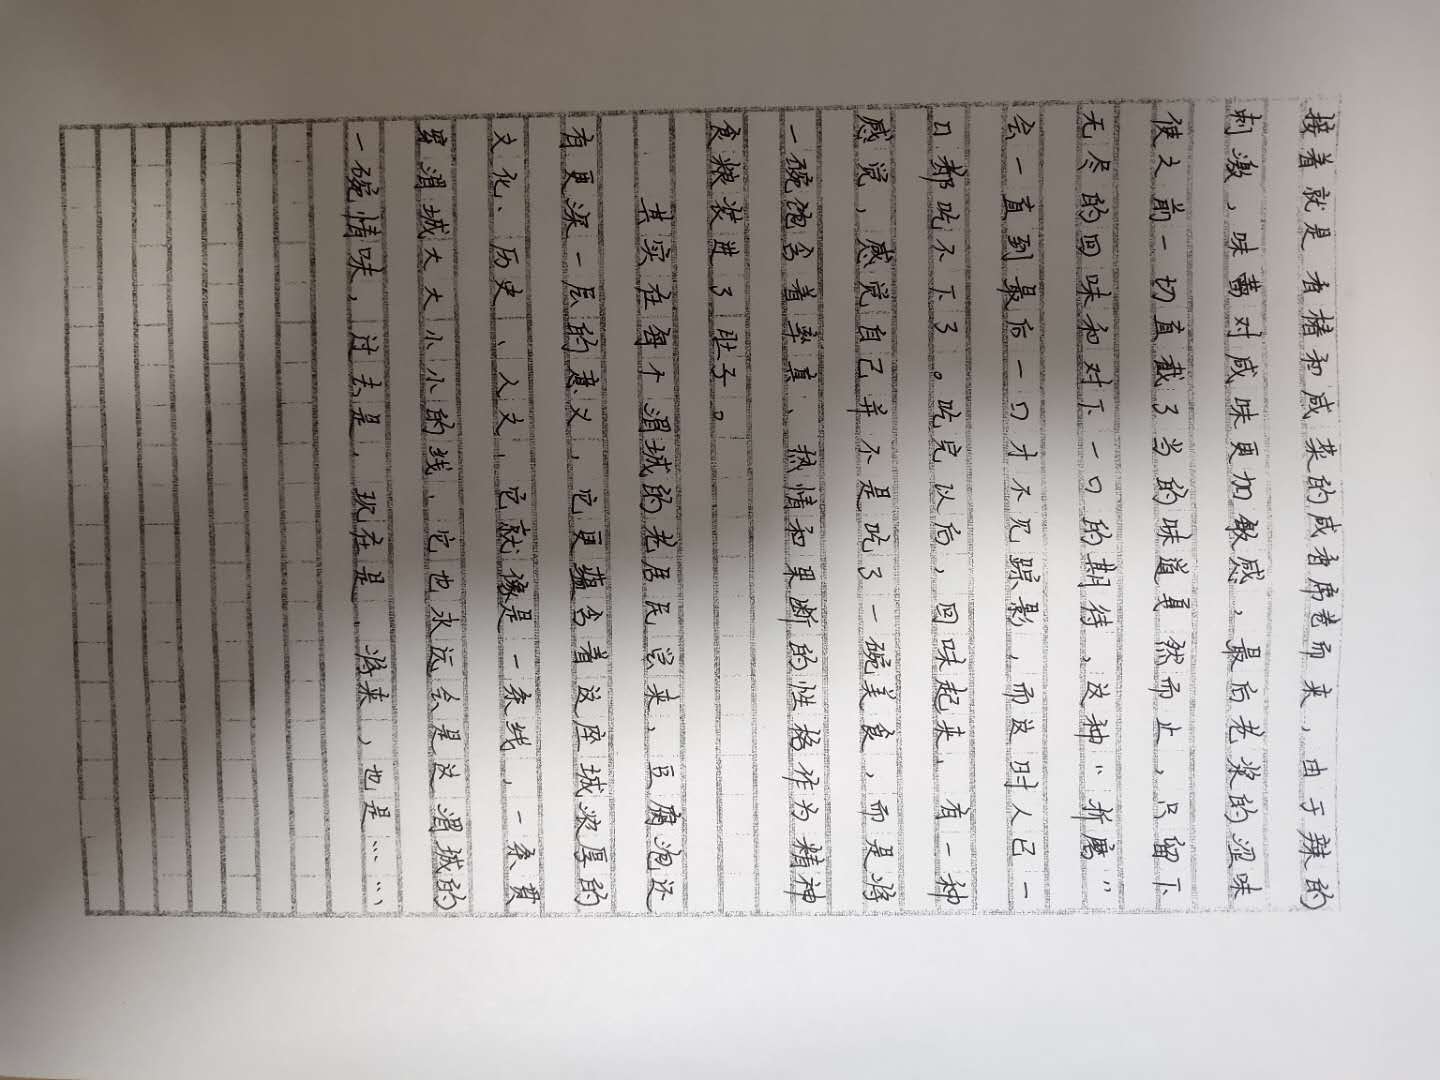 接着就是香椿和咸菜的咸香席卷而来,由于辣的
刺激,味蕾对咸味更加敏感,最后老浆的涩味
使之前一切直截了当的味道戛然而止,只留下
无尽的回味和对下一口的期待,这种“折磨”
会一直到最后一口才不见踪影,而这时人已一
口都吃不下了。吃完以后,回味起来,有一种
感觉,感觉自己并不是吃了一碗美食,而是将
一碗饱含着率直、热情和果断的性格作为精神
食粮装进了肚子。
其实在每个渭城的老居民说来,豆腐泡还
有更深一层的意义,它更蕴含着这座城浓厚的
文化、历史、人文,它就像是一条线,一条贯
穿渭城大大小小的线,它也永远会是这渭城的
一碗情味,过去是,现在是,将来,也是……